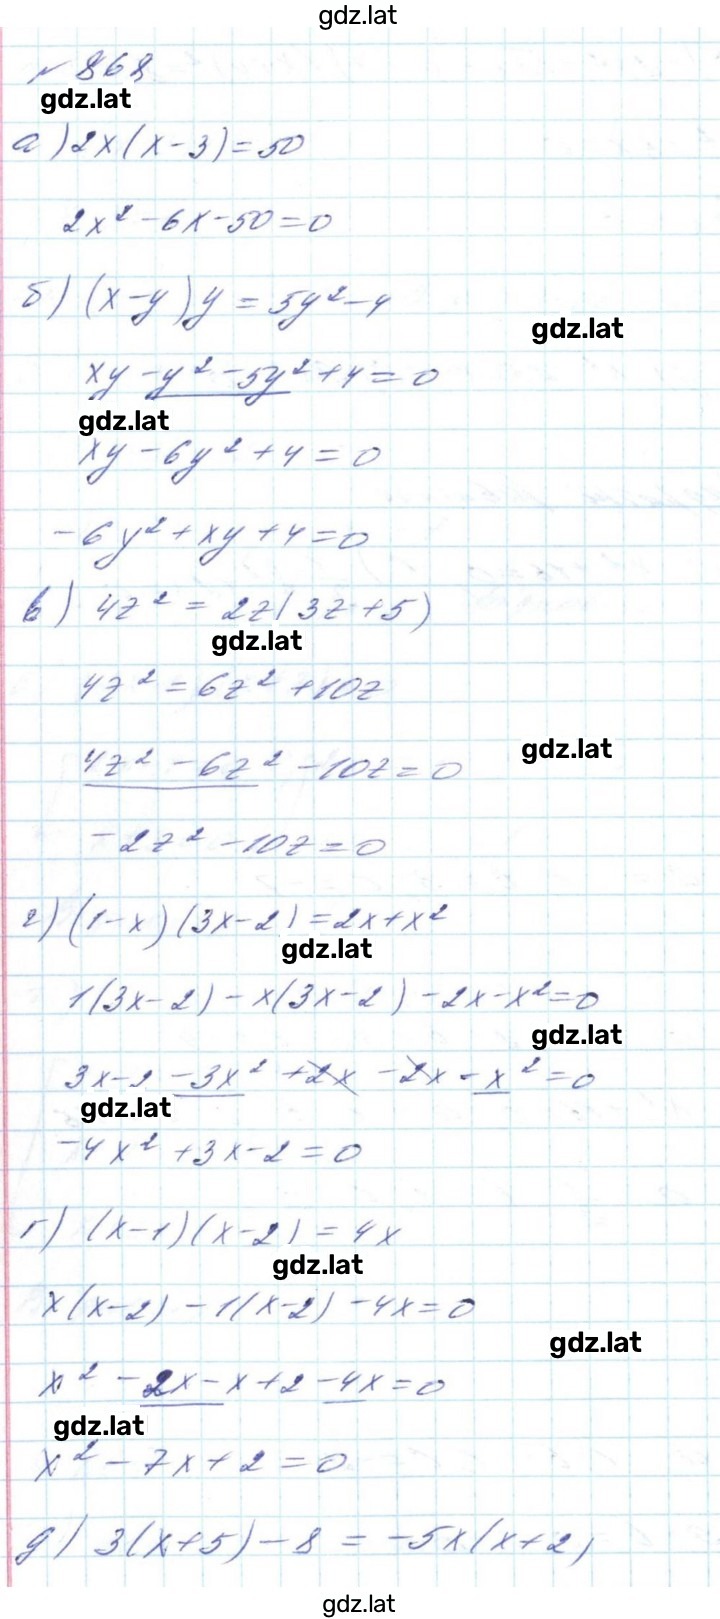 gdz.lat
№ 868
gdz.lat
а) 2x(x-3)=50
2x²-6x-50=0
б) (x-y)y=5y²-4
gdz.lat
xy-y²-5y²+4=0
gdz.lat
xy-6y²+4=0
-6y²+xy+4=0
в) 4z²=2z(3z+5)
gdz.lat
4z²=6z²+10z
gdz.lat
4z²-6z²-10z=0
-2z²-10z=0
г) (1-x)(3x-2)=2x+x²
gdz.lat
1(3x-2)-x(3x-2)-2x-x²=0
gdz.lat
3x-2-3x²+2x-2x-x²=0
gdz.lat
-4x²+3x-2=0
г) (x-1)(x-2)=4x
gdz.lat
x(x-2)-1(x-2)-4x=0
gdz.lat
x²-2x-x+2-4x=0
gdz.lat
x²-7x+2=0
д) 3(x+5)-8=-5x(x+2)
gdz.lat